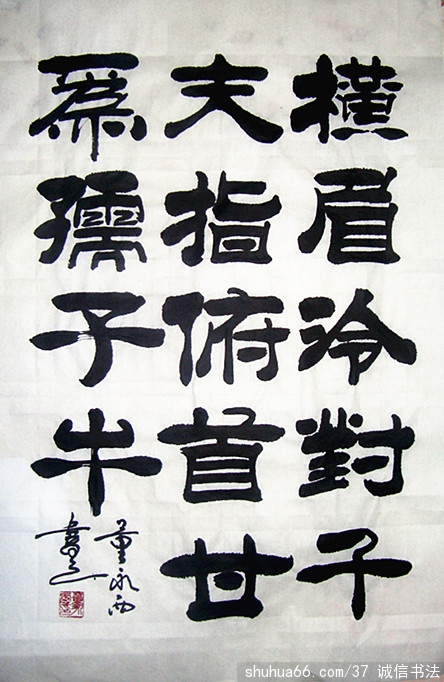 橫眉冷對千
夫指俯首甘
爲孺子牛
董永西
書
shuhua66.com/37 诚信书法